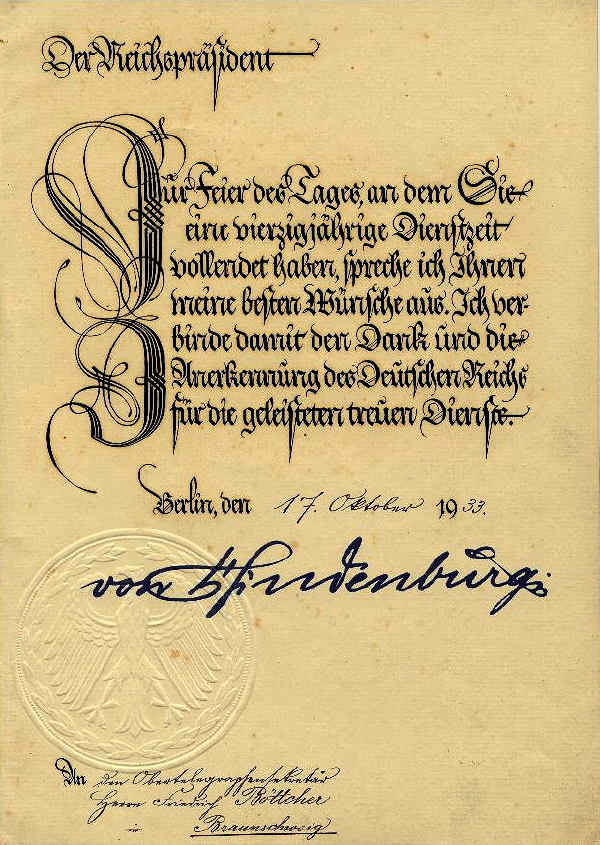 Der Reichspräsident
Zur Feier des Tages, an dem Sie
eine vierzigjährige Dienstzeit
vollendet haben, spreche ich Ihnen
meine besten Wünsche aus. Ich ver-
binde damit den Dank und die
Anerkennung des Deutschen Reichs
für die geleisteten treuen Dienste.
Berlin, den 17. Oktober 1933.
von Hindenburg
An den Obertelegraphensekretär
Herrn Friedrich Böttcher
in
Braunschweig